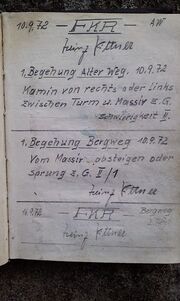 10.9.72 — FKR — AW
Heinz Kittner
1. Begehung Alter Weg. 10.9.72
Kamin von rechts oder links
zwischen Turm u. Massiv z. G.
Schwierigkeit II.
1. Begehung Bergweg 10.9.72
Vom Massiv absteigen oder
sprung z. G. II/1
Heinz Kittner
.9.72 — FKR — Bergweg
Heinz Kittner